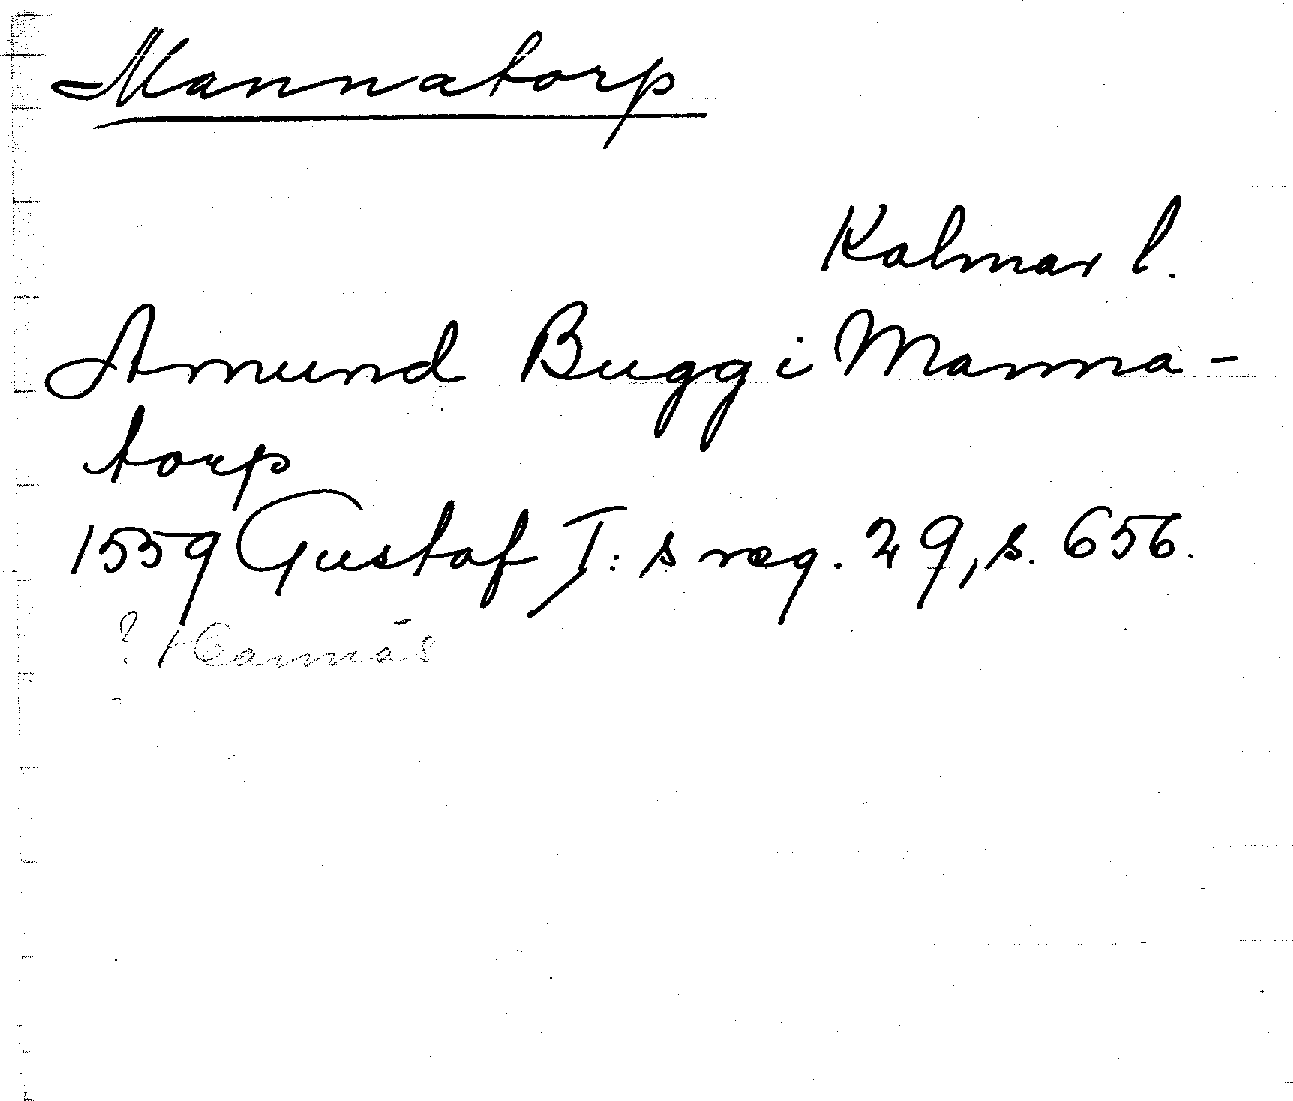 Mannatorp
Kalmar l.
Amund Bugg i Manna-
torp
1559 Gustaf I:s reg. 29, s. 656.
?